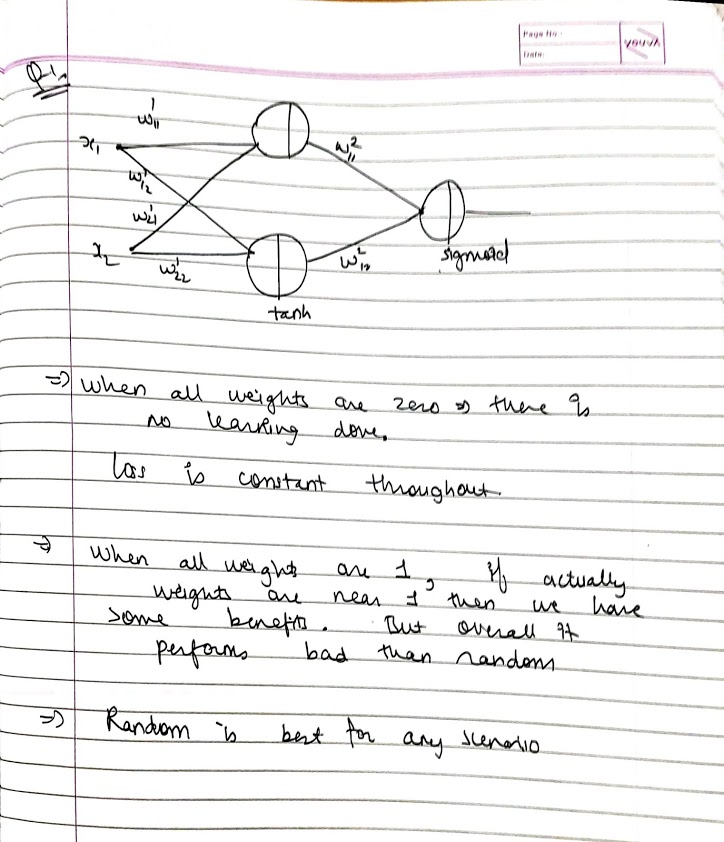 Page No.:
Date:
YOUVA
Q-1.
w¹₁₁
x₁
w²₁₁
w¹₁₂
w¹₂₁
x₂
w¹₂₂
w²₁₂
sigmoid
tanh
⇒ When all weights are zero ⇒ there is
no learning done.
Loss is constant throughout.
⇒ When all weights are 1, if actually
weights are near 1 then we have
some benefits. But overall it
performs bad than random
⇒ Random is best for any scenario